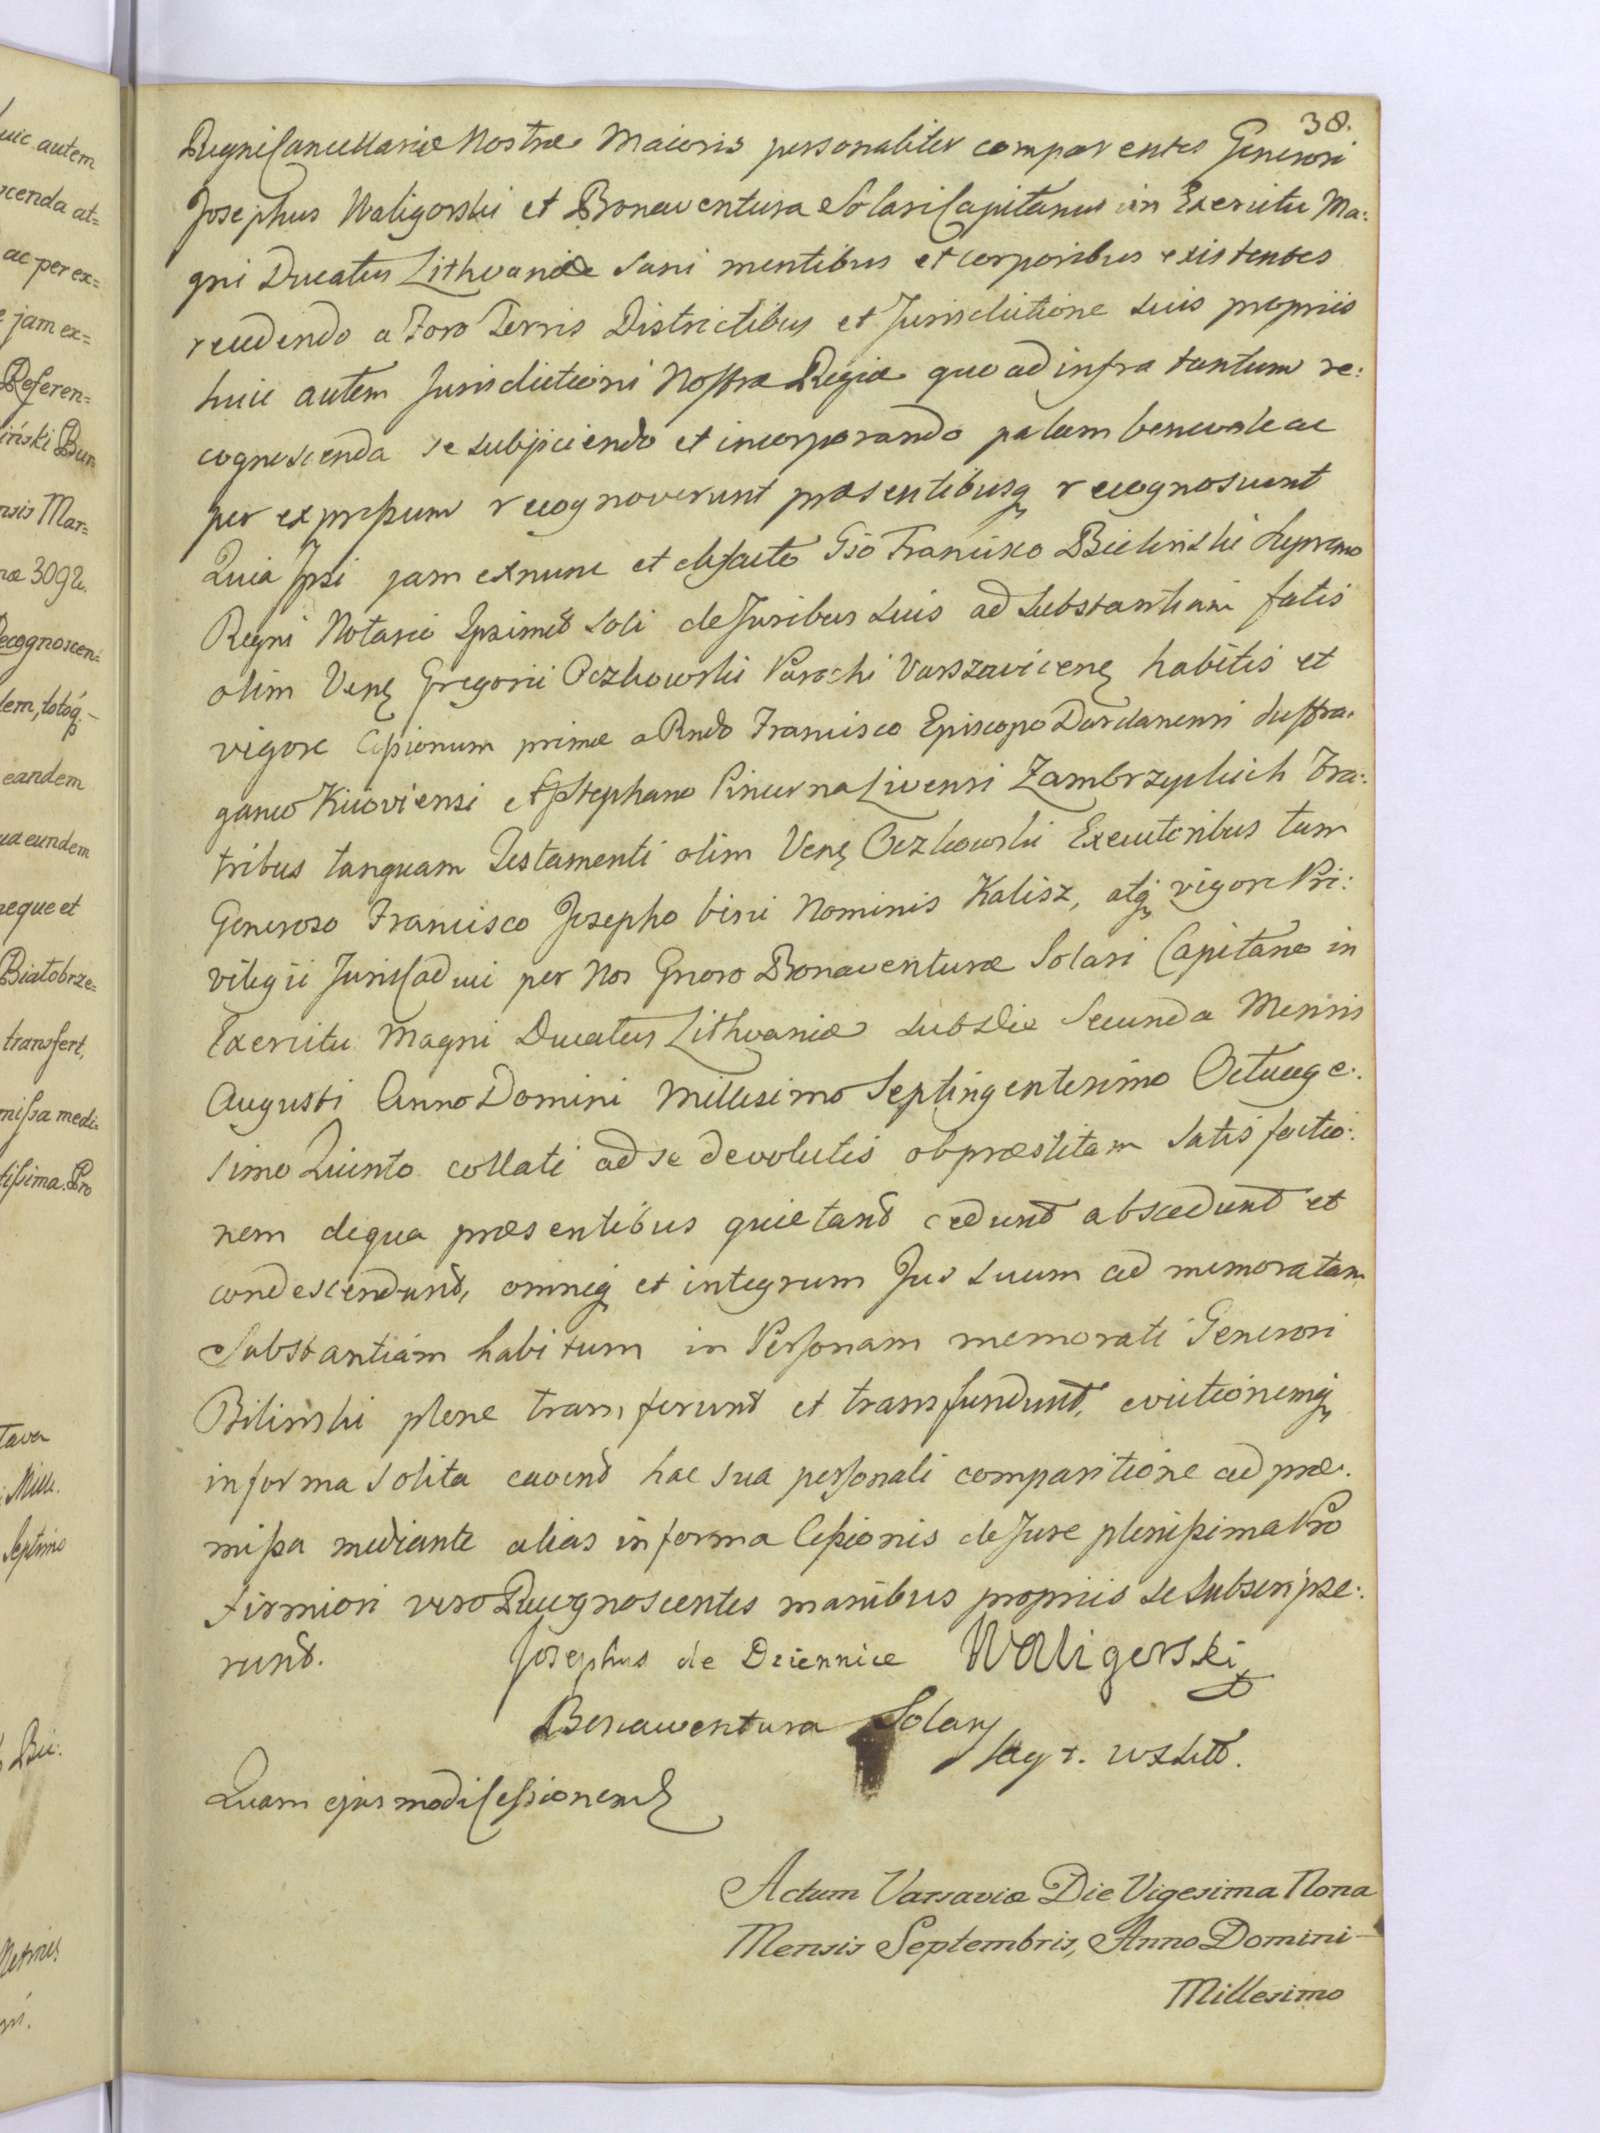 38.
Regni Cancellariæ Nostræ Maioris personaliter comparentes Generosi
Josephus Waligorski et Bonaventura Solari Capitanus in Exercitu Ma:
gni Ducatus Lithvaniæ Sani mentibus et corporibus existentes
recedendo a Foro Terris Districtibus et Jurisdictione suis propriis
huic autem Jurisdictioni Nostræ Regiæ quo ad infra tantum re:
cognoscenda se subjiciendo et incorporando palam benevole ac
per expressum recognoverunt præsentibusq recognoscunt
Quia Ipsi jam exnunc et defacto Gso Francisco Bielinski Supremo
Regni Notario Ipsimet soli de Juribus suis ad substantiam fatis
olim Venę Gregorii Oczkowski Parochi Varszavicenę habitis et
vigore Cessionum primæ a Rndo Francisco Episcopo Dardanensi Suffra:
ganeo Kiioviensi et Stephano Pincerna Livensi Zambrzyckich Fra:
tribus tanquam Testamenti olim Venę Oczkowski Executoribus tum
Generoso Francisco Josepho bini Nominis Kalisz, atq vigore Pri:
vilegii Juris Caduci per Nos Gnoro Bonaventuræ Solari Capitaneo in
Exercitu Magni Ducatus Lithvaniæ sub Die Secunda Mensis
Augusti Anno Domini Millesimo Septingentesimo Octuage:
simo Quinto collati ad se devolutis ob præstitam Satisfactio:
nem de qua præsentibus quietant cedunt abscedunt et
condescendunt, omneq et integrum Jus suum ad memoratam
Substantiam habitum in Personam memorati Generosi
Bilinski plene transferunt et transfundunt, evictionemq
in forma solita cavent hac sua personali comparitione ad præ:
missa mediante alias in forma Cessionis de Jure plenissima Pro
firmiori vero Recognoscentes manibus propriis se subscripse:
runt. Josephus de Dziennice Waligorski
Bonawentura Solary
Quam ejusmodi Cessionem
Actum Varsaviæ Die Vigesima Nona
Mensis Septembris, Anno Domini
Millesimo